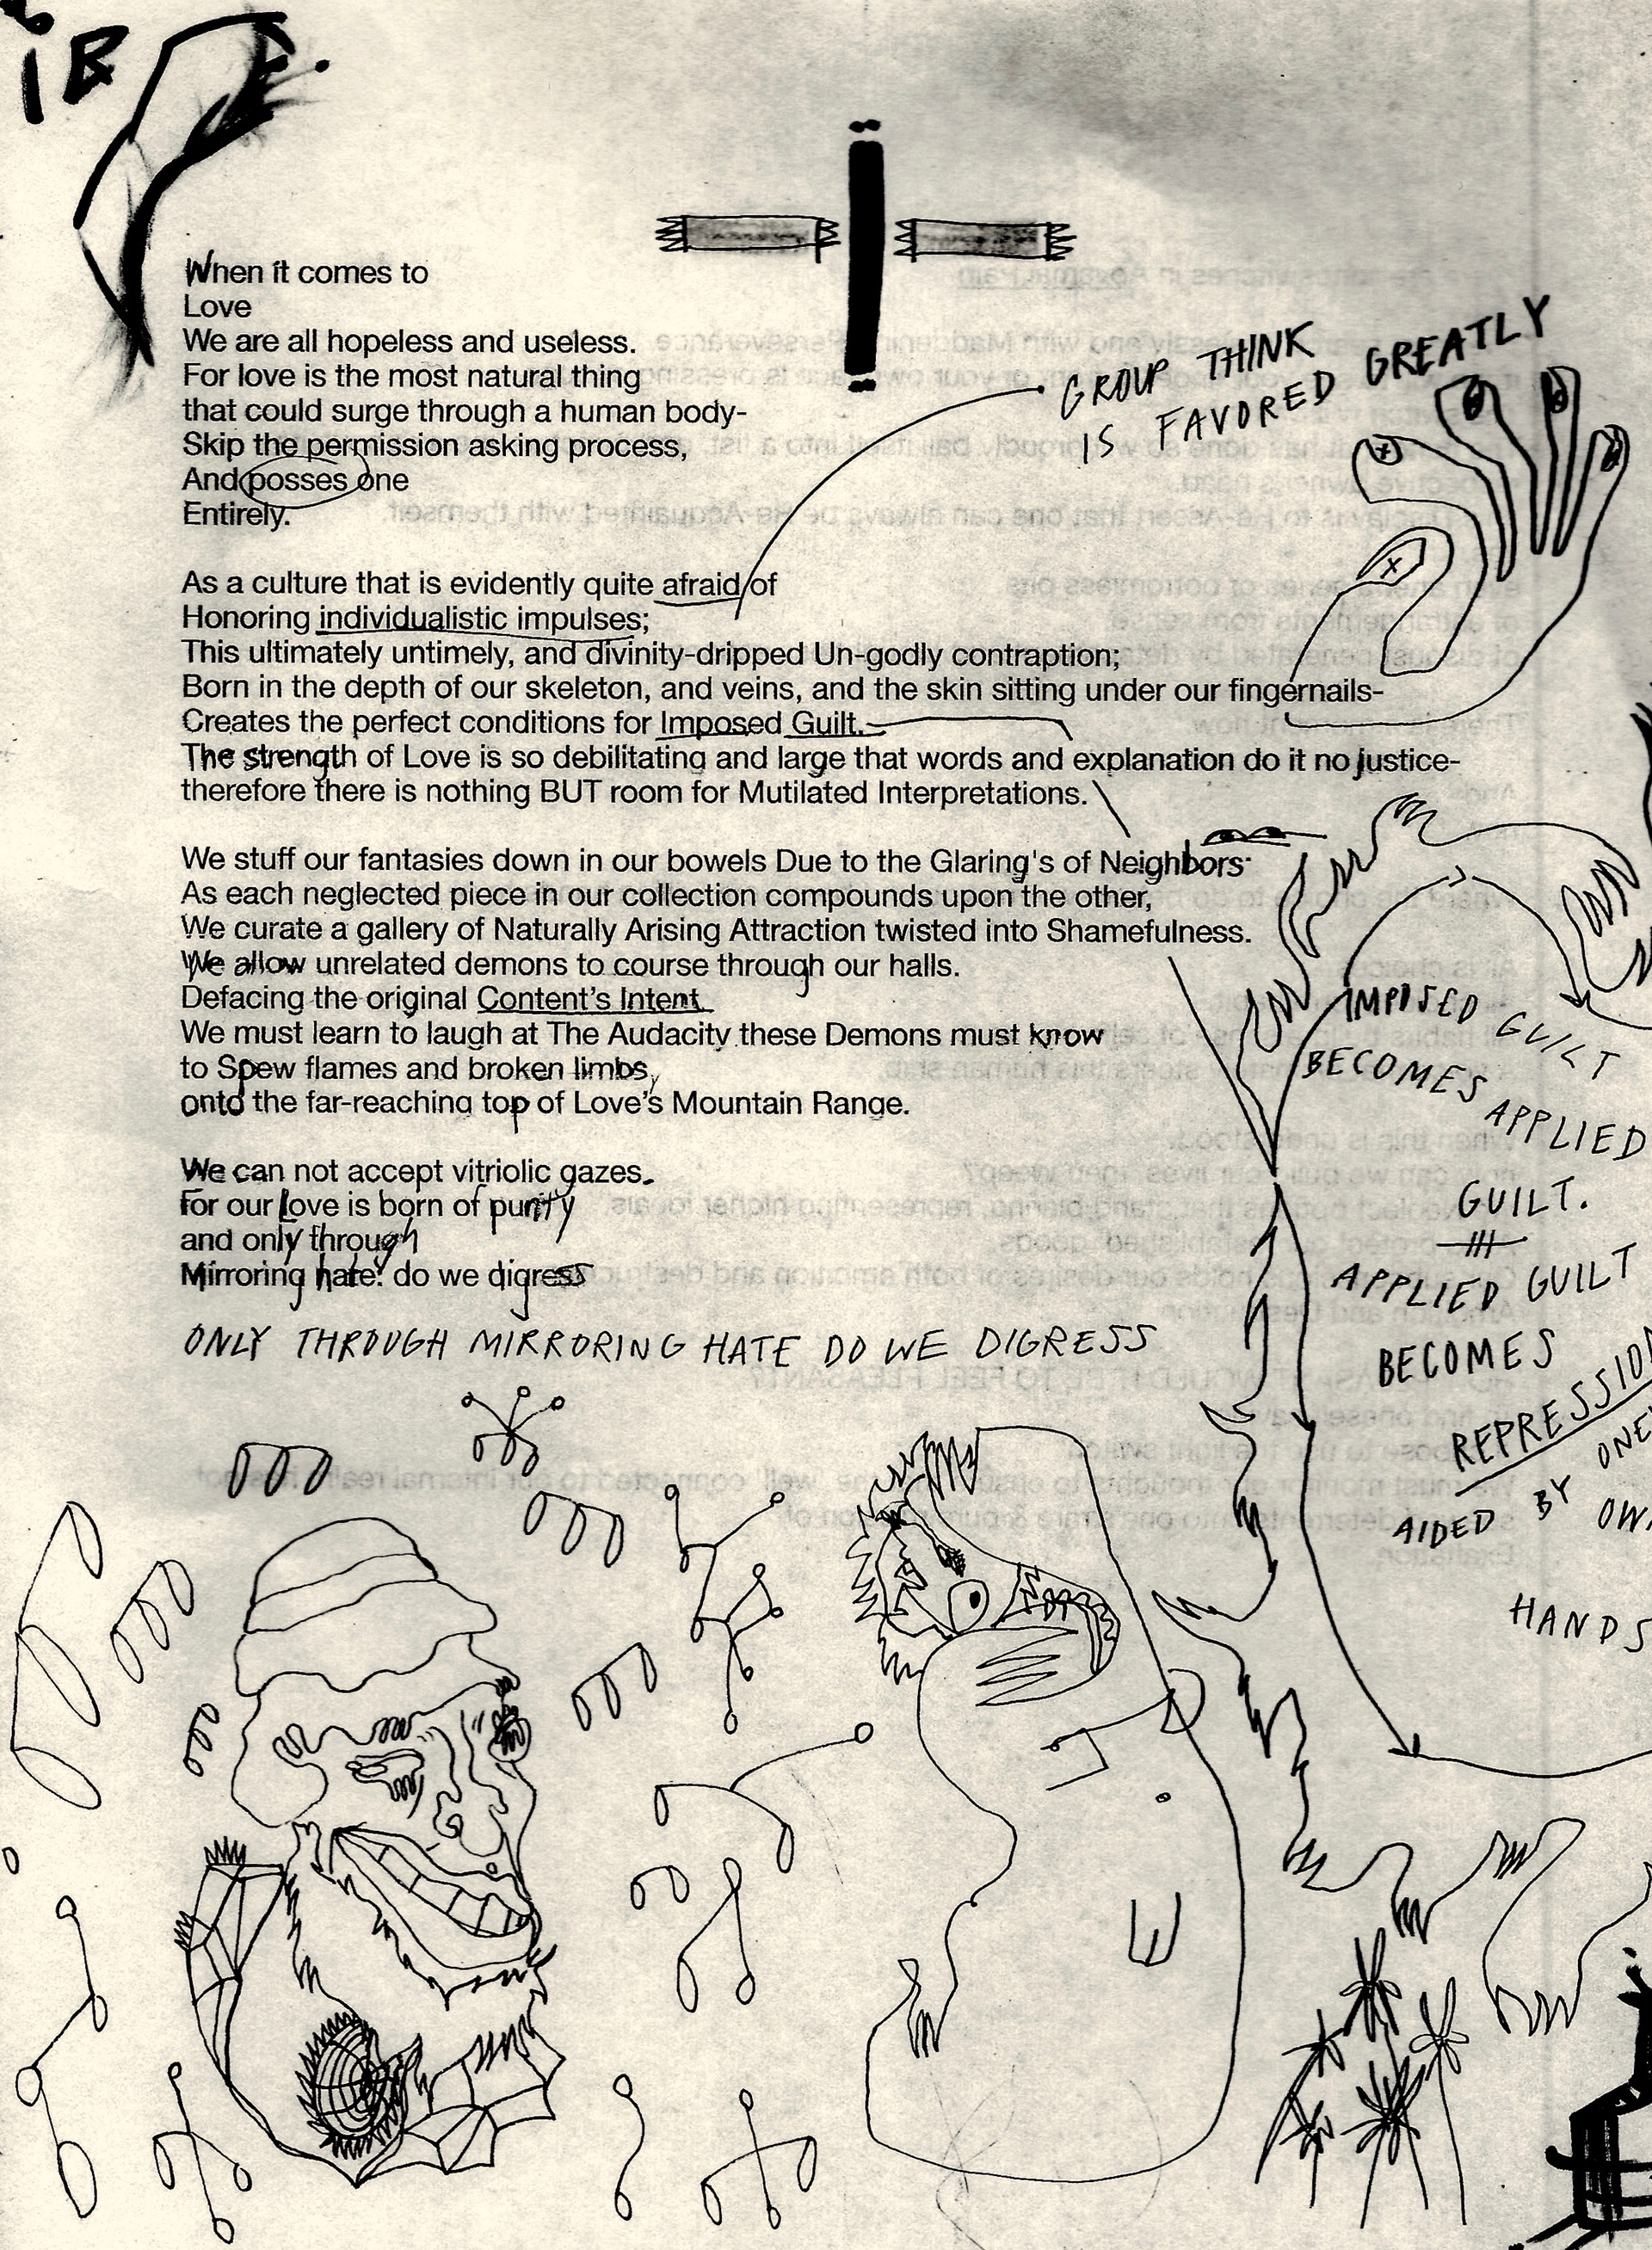 iB
When it comes to
Love
We are all hopeless and useless.
For love is the most natural thing
that could surge through a human body-
Skip the permission asking process,
And posses one
Entirely.
GROUP THINK
IS FAVORED GREATLY
As a culture that is evidently quite afraid of
Honoring individualistic impulses;
This ultimately untimely, and divinity-dripped Un-godly contraption;
Born in the depth of our skeleton, and veins, and the skin sitting under our fingernails-
Creates the perfect conditions for Imposed Guilt.
The strength of Love is so debilitating and large that words and explanation do it no justice-
therefore there is nothing BUT room for Mutilated Interpretations.
We stuff our fantasies down in our bowels Due to the Glaring's of Neighbors
As each neglected piece in our collection compounds upon the other,
We curate a gallery of Naturally Arising Attraction twisted into Shamefulness.
We allow unrelated demons to course through our halls.
Defacing the original Content's Intent
We must learn to laugh at The Audacity these Demons must know
to Spew flames and broken limbs,
onto the far-reaching top of Love's Mountain Range.
We can not accept vitriolic gazes.
For our Love is born of purity
and only through
Mirroring hate: do we digress
ONLY THROUGH MIRRORING HATE DO WE DIGRESS
IMPOSED GUILT
BECOMES
APPLIED
GUILT.
APPLIED GUILT
BECOMES
REPRESSION
AIDED BY ONE'
OW
HANDS